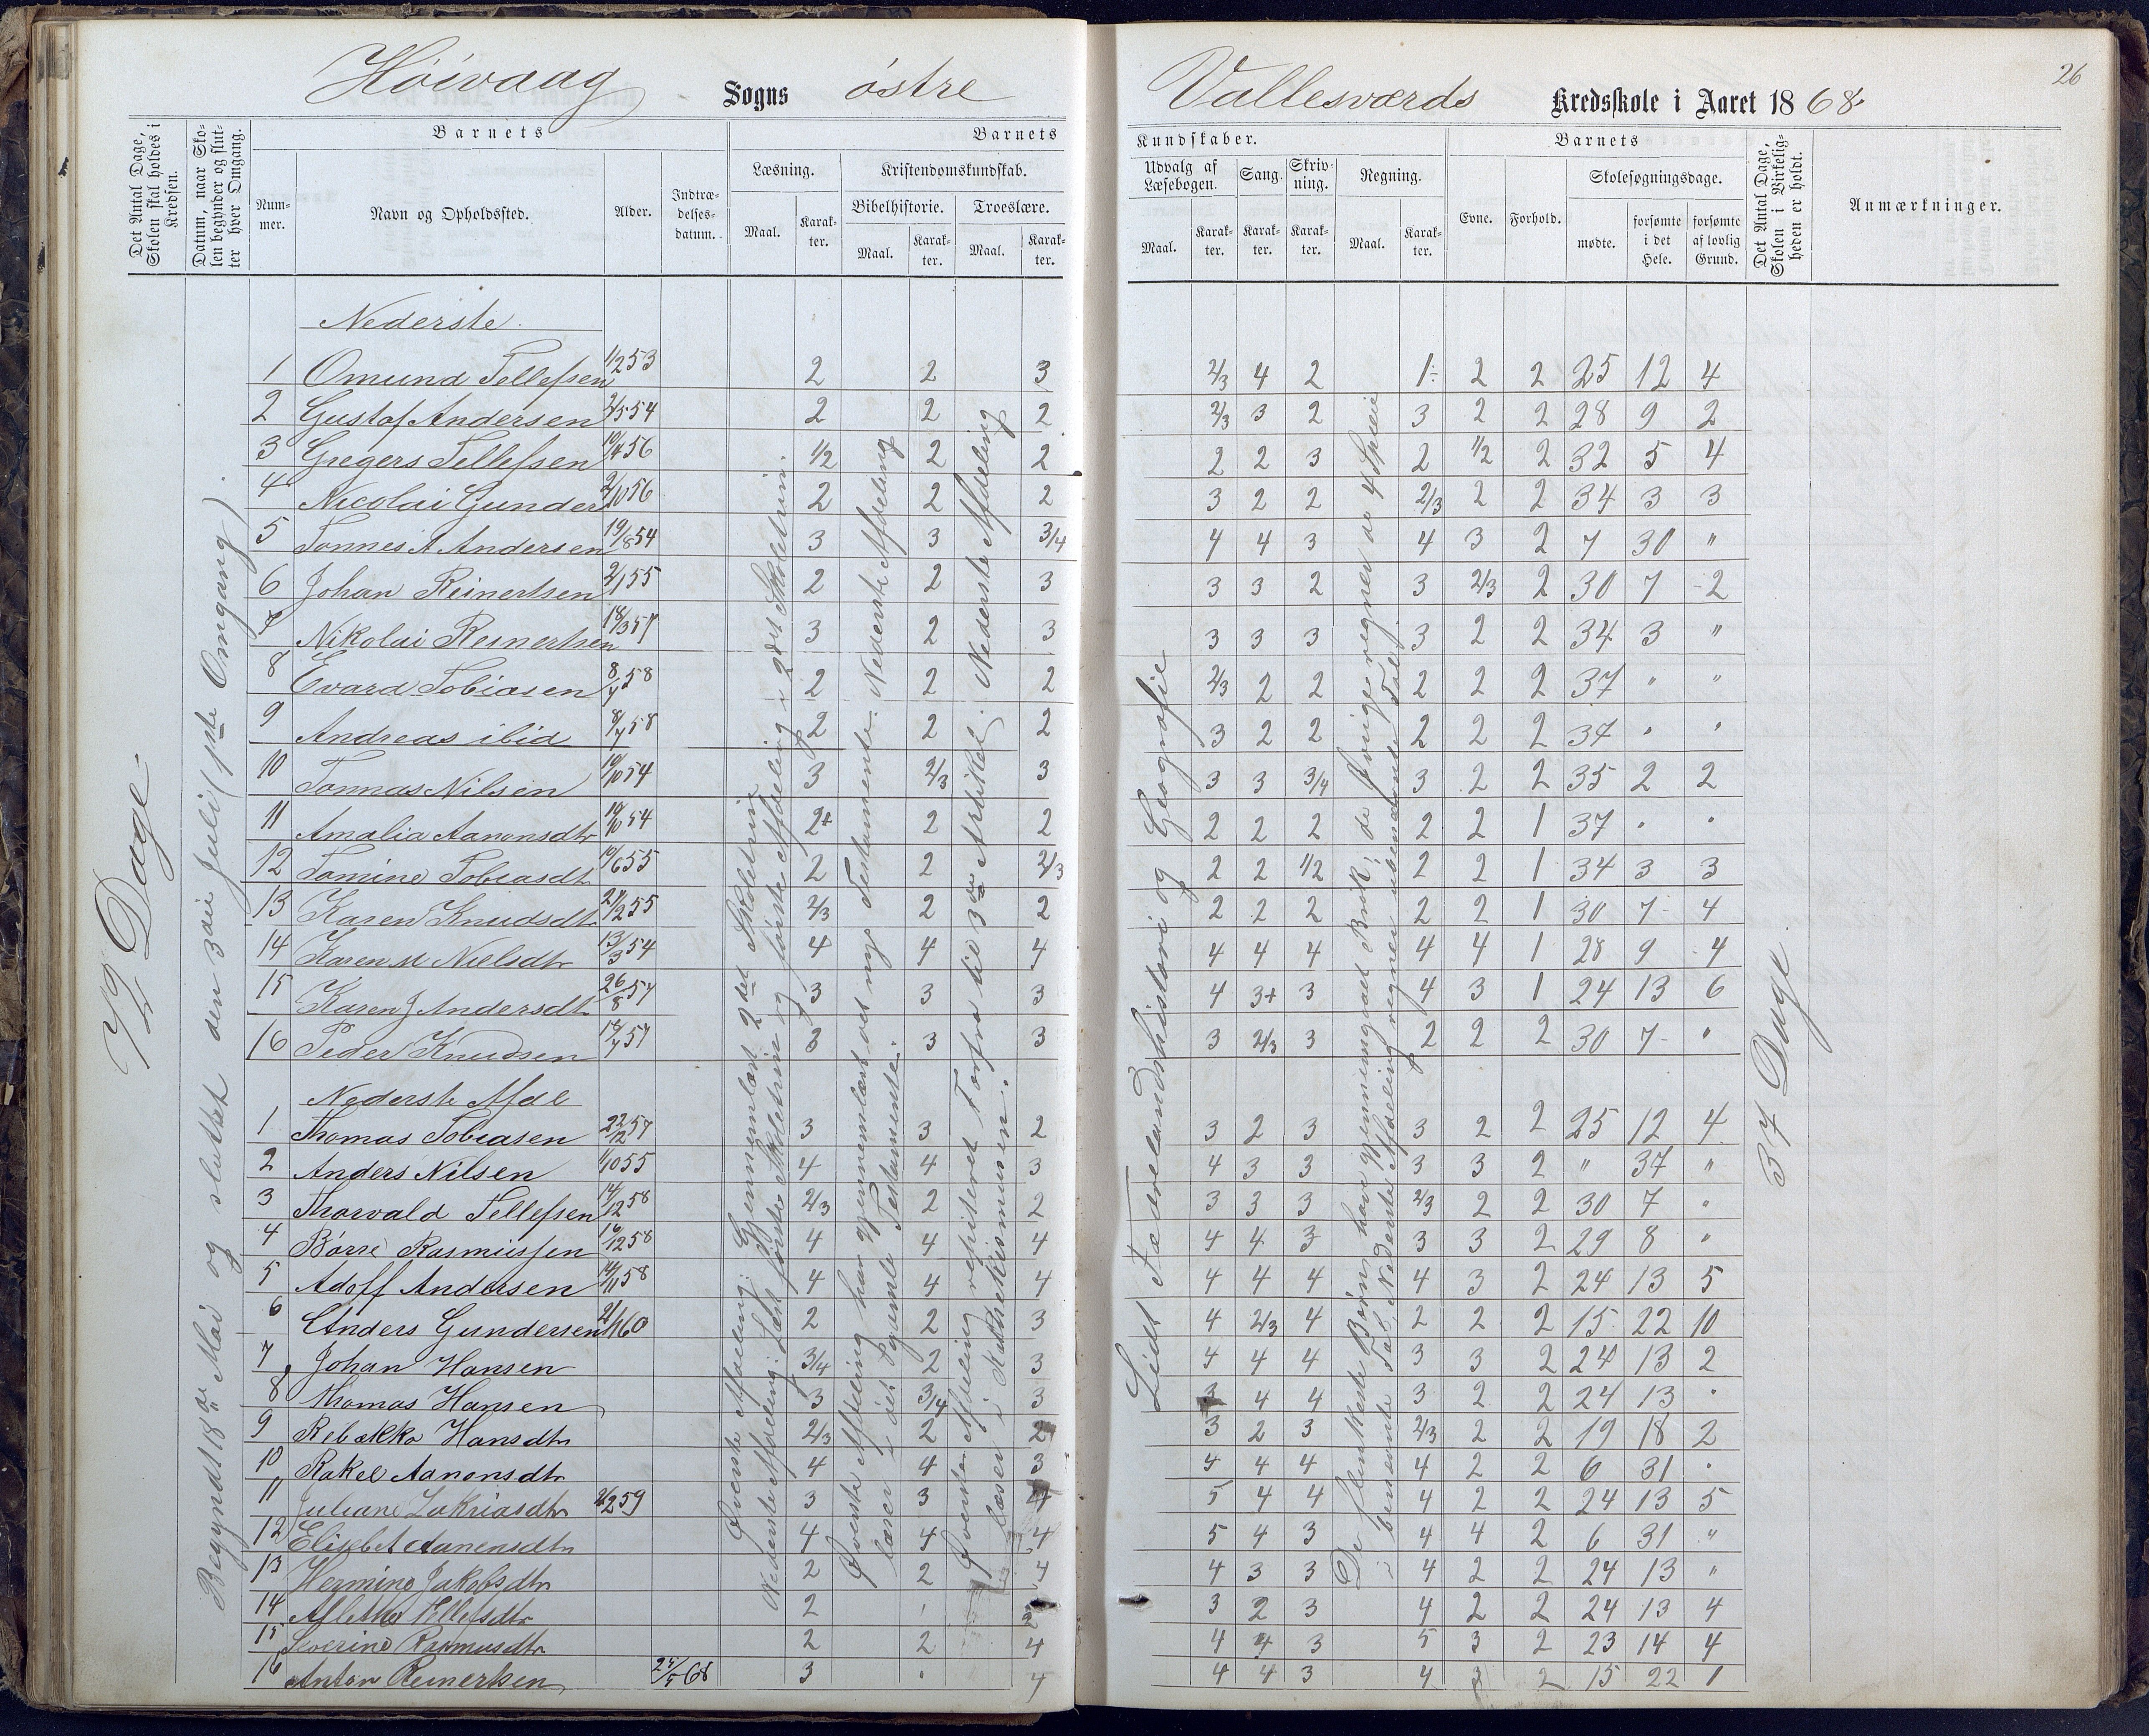 Høivaag Sogns østre Vallesværds Kredsskole i Aaret 1868.
26
Det Antal Dage, Skolen skal holdes i Kredsen.
Datum, naar Skolen begynder og slutter hver Omgang.
Barnets
Nummer.
Navn og Opholdssted.
Alder.
Indtrædelsesdatum.
Barnets
Læsning.
Maal.
Karakter.
Kristendomskundskab.
Bibelhistorie.
Maal.
Karakter.
Troeslære.
Maal.
Karakter.
Kundskaber.
Udvalg af Læsebogen.
Maal.
Karakter.
Sang.
Karakter.
Skrivning.
Karakter.
Regning.
Maal.
Karakter.
Barnets
Evne.
Forhold.
Skolesøgningsdage.
mødte.
forsømte i det Hele.
forsømte af lovlig Grund.
Det Antal Dage, Skolen i Virkeligheden er holdt.
Anmærkninger.
72 Dage.
Begyndt 18de Mai og sluttet den 3die Juli (1ste Omgang).
Øverste Afdeling: Gjennemlæst 2det Skoletrin
Nederste Afdeling: Læst første Skoletrin og første Afdeling i 2det Skoletrin.
Øverste Afdeling har gjennemlæst det nye Testamente. Nederste Afdeling
læser i det gamle Testamente.
Øverste Afdeling repiteret Forfra til 3die Artikkel. Nederste Afdeling
læser i Katekismusen.
Lidt Fædrelandshistori og Geografie
De flinkeste Børn have gjennemgaaet Brøk, de Øvrige regner de 4 Speci
i benævnte Tal, Nederste Afdeling regner ubenævnte Tal.
37 Dage.
Nederste
1 Omund Tellefsen 1/2 53 2 2 3 2/3 4 2 1- 2 2 25 12 4
2 Gustaf Andersen 2/5 54 2 2 2 2/3 3 2 3 2 2 28 9 2
3 Gregers Tellefsen 10/4 56 1/2 2 2 2 2 3 2 1/2 2 32 5 4
4 Nicolai Gunders 2/10 56 2 2 2 3 2 2 2/3 2 2 34 3 3
5 Tønnes A Andersen 19/8 54 3 3 3/4 4 4 3 4 3 2 7 30 "
6 Johan Reinertsen 2/1 55 2 2 3 3 3 2 3 2/3 2 30 7 2
7 Nikolai Reinertsen 18/3 57 3 2 3 3 3 3 3 2 2 34 3 "
8 Evard Tobiasen 8/4 58 2 2 2 2/3 2 2 2 2 2 37 " "
9 Andreas ibid 8/4 58 2 2 2 3 2 2 2 2 2 37 " "
10 Tønnas Nilsen 10/10 54 3 2/3 3 3 3 3/4 3 2 2 35 2 2
11 Amalia Aanonsdtr 10/10 54 2+ 2 2 2 2 2 2 2 1 37 " "
12 Tomine Tobiasdt 10/6 55 2 2 2/3 2 2 1/2 2 2 1 34 3 3
13 Karen Knudsdtr 27/2 55 2/3 2 2 2 2 2 2 2 1 30 7 4
14 Karen M Nielsdtr 13/3 54 4 4 4 4 4 4 4 4 1 28 9 4
15 Karen J Andersdt 26/8 57 3 3 3 4 3+ 3 4 3 1 24 13 6
16 Peder Knudsen 3 3 3 3 2/3 3 2 2 2 30 7 "
Nederste Afdl
1 Thomas Tobiasen 22/12 57 3 3 2 3 2 3 3 2 2 25 12 4
2 Anders Nilsen 1/10 55 4 4 3 4 3 3 3 3 2 " 37 "
3 Thorvald Tellefsen 14/12 58 2/3 2 2 3 3 3 2/3 2 2 30 7 "
4 Børre Rasmussen 16/12 58 4 4 4 4 4 3 3 3 2 29 8 "
5 Adolf Andersen 14/11 58 4 4 4 4 4 4 4 3 2 24 13 5
6 Anders Gundersen 2/1 60 2 2 3 4 2/3 4 2 2 2 15 22 10
7 Johan Hansen 3/4 2 3 4 4 4 3 3 2 24 13 2
8 Thomas Hansen 3 3/4 3 3 4 4 3 2 2 24 13 "
9 Rebækka Hansdtr 2/3 2 2 3 2 3 2/3 2 2 19 18 2
10 Rakel Aanonsdtr 4 4 3 4 4 4 4 2 2 6 31 "
11 Juliane Zakriasdtr 2/2 59 3 3 4 5 4 4 4 2 2 24 13 5
12 Elisbet Aanensdtr 4 4 4 5 4 3 4 4 2 6 31 "
13 Hermine Jakobsdtr 2 2 4 4 3 3 4 2 2 24 13 "
14 Tellefsdtr 2 2 3 2 3 4 2 2 24 13 4
15 Severine Rasmusdtr 2 2 4 4 4 3 5 3 2 23 14 4
16 Anton Reinertsen 25/5 68 3 " 4 4 4 3 4 3 2 15 22 1